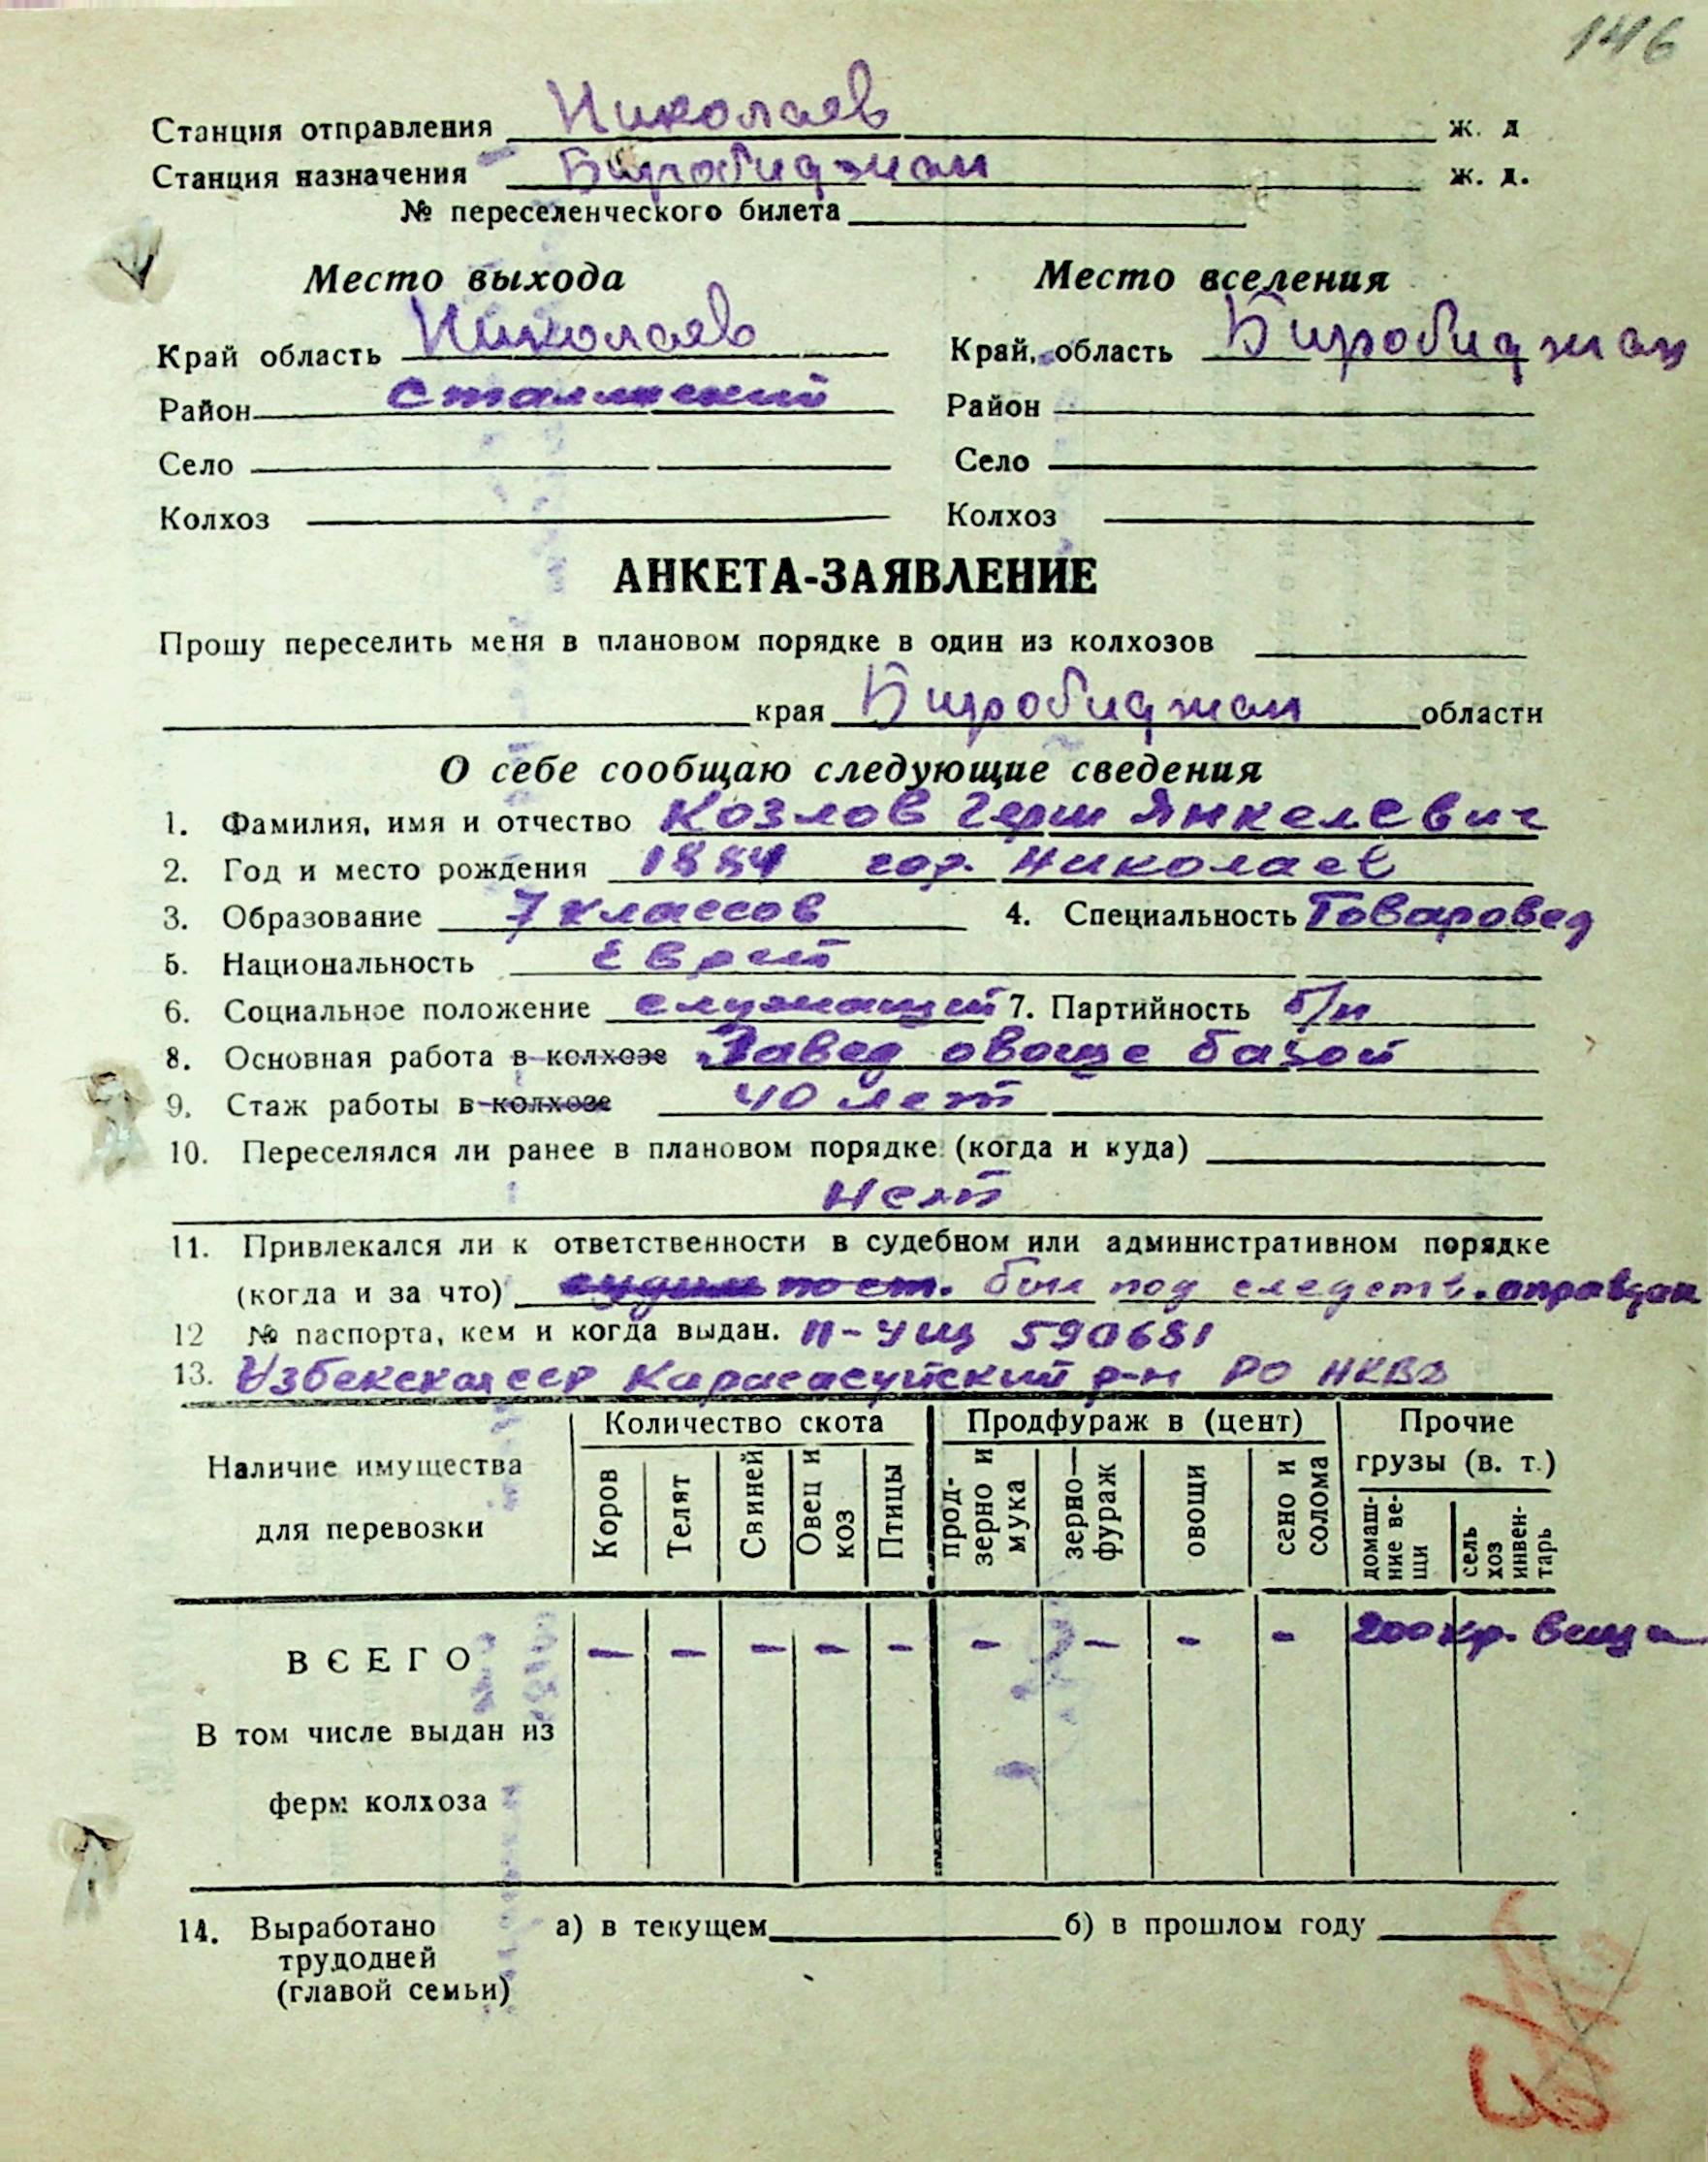 146
Станция отправления Николаев ж. д
Станция назначения Биробиджан ж. д.
№ переселенческого билета
Место выхода
Место вселения
Край область Николаев
Край, область Биробиджан
Район Сталинский
Район
Село
Село
Колхоз
Колхоз
АНКЕТА-ЗАЯВЛЕНИЕ
Прошу переселить меня в плановом порядке в один из колхозов
края Биробиджан области
О себе сообщаю следующие сведения
1. Фамилия, имя и отчество Козлов Герш Янкелевич
2. Год и место рождения 1884 гор. Николаев
3. Образование 7 классов 4. Специальность Товаровед
5. Национальность Еврей
6. Социальное положение служащий 7. Партийность б/п
8. Основная работа в колхозе Завед овоще базой
9. Стаж работы в колхозе 40 лет
10. Переселялся ли ранее в плановом порядке (когда и куда)
Нет
11. Привлекался ли к ответственности в судебном или административном порядке
(когда и за что) был под следств. оправдан
12 № паспорта, кем и когда выдан. II-УЩ 590681
13. Узбекская сср Карасасуйский р-н РО НКВД
Наличие имущества
для перевозки
Количество скота
Продфураж в (цент)
Прочие
грузы (в. т.)
Коров
Телят
Свиней
Овец и
коз
Птицы
прод-
зерно и
мука
зерно—
фураж
овощи
сено и
солома
домаш-
ние ве-
щи
сель
хоз
инвен-
тарь
ВСЕГО — — — — — — — — — 200 кг. вещи
В том числе выдан из
ферм колхоза
14. Выработано а) в текущем б) в прошлом году
трудодней
(главой семьи)